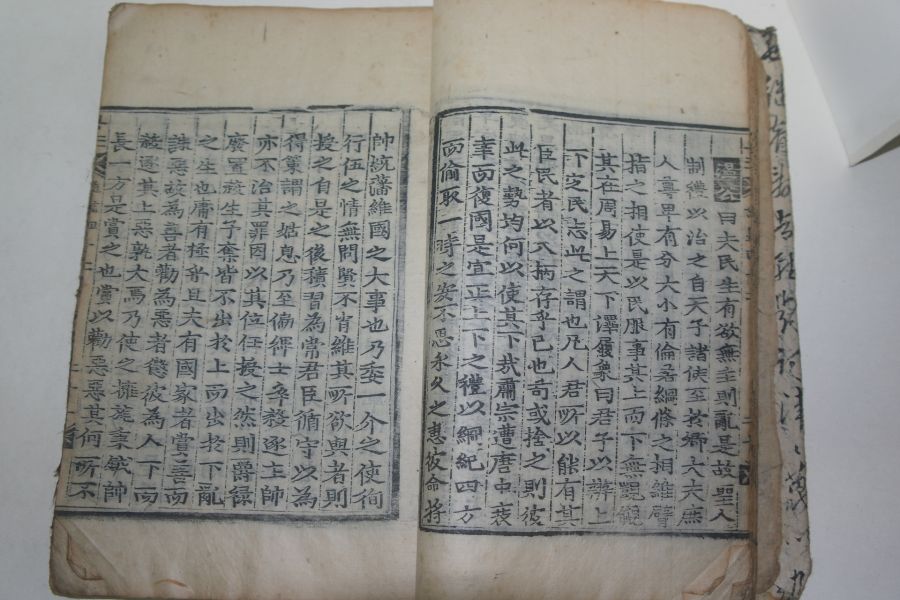 曰夫民生有欲無主則亂是故聖人
制禮以治之自天子諸侯至於卿大夫庶
人尊卑有分大小有倫若綱條之相維臂
指之相使是以民服事其上而下無覬覦
其在周易上天下澤履象曰君子以辨上
下定民志此之謂也凡人君所以能有其
臣民者以八柄存乎已也苟或捨之則彼
此之勢均何以使其下哉肅宗遭唐中衰
幸而復國是宜正上下之禮以綱紀四方
而偷取一時之安不思永久之患彼命將
帥統藩維國之大事也乃委一介之使徇
行伍之情無問賢不肖維其所欲與者則
授之自是之後積習為常君臣循守以為
得策謂之姑息乃至偏裨士卒殺逐主帥
亦不治其罪因以其位任授之然則爵祿
廢置殺生予奪皆不出於上而出於下亂
之生也庸有極乎且夫有國家者賞善而
誅惡故為善者勸為惡者懲彼為人下而
殺逐其上惡孰大焉乃使之擁旄秉鉞帥
長一方是賞之也賞以勸惡惡其何所不